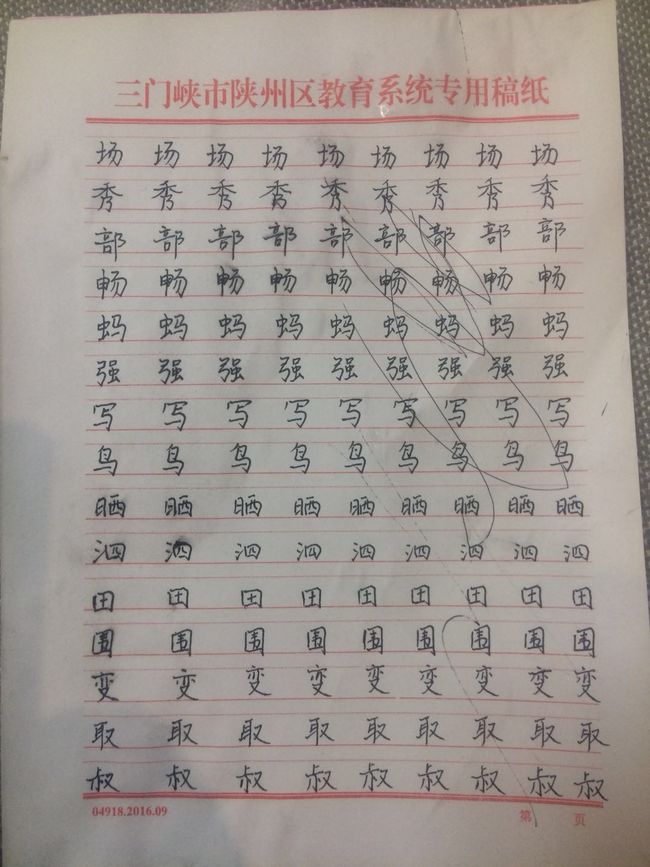 三门峡市陕州区教育系统专用稿纸
场 场 场 场 场 场 场 场 场
秀 秀 秀 秀 秀 秀 秀 秀 秀
部 部 部 部 部 部 部 部 部
畅 畅 畅 畅 畅 畅 畅 畅 畅
蚂 蚂 蚂 蚂 蚂 蚂 蚂 蚂 蚂
强 强 强 强 强 强 强 强 强
写 写 写 写 写 写 写 写 写
鸟 鸟 鸟 鸟 鸟 鸟 鸟 鸟 鸟
晒 晒 晒 晒 晒 晒 晒 晒 晒
泗 泗 泗 泗 泗 泗 泗 泗 泗
田 田 田 田 田 田 田 田 田
围 围 围 围 围 围 围 围 围
变 变 变 变 变 变 变 变 变
取 取 取 取 取 取 取 取 取
叔 叔 叔 叔 叔 叔 叔 叔 叔
04918.2016.09 第 页